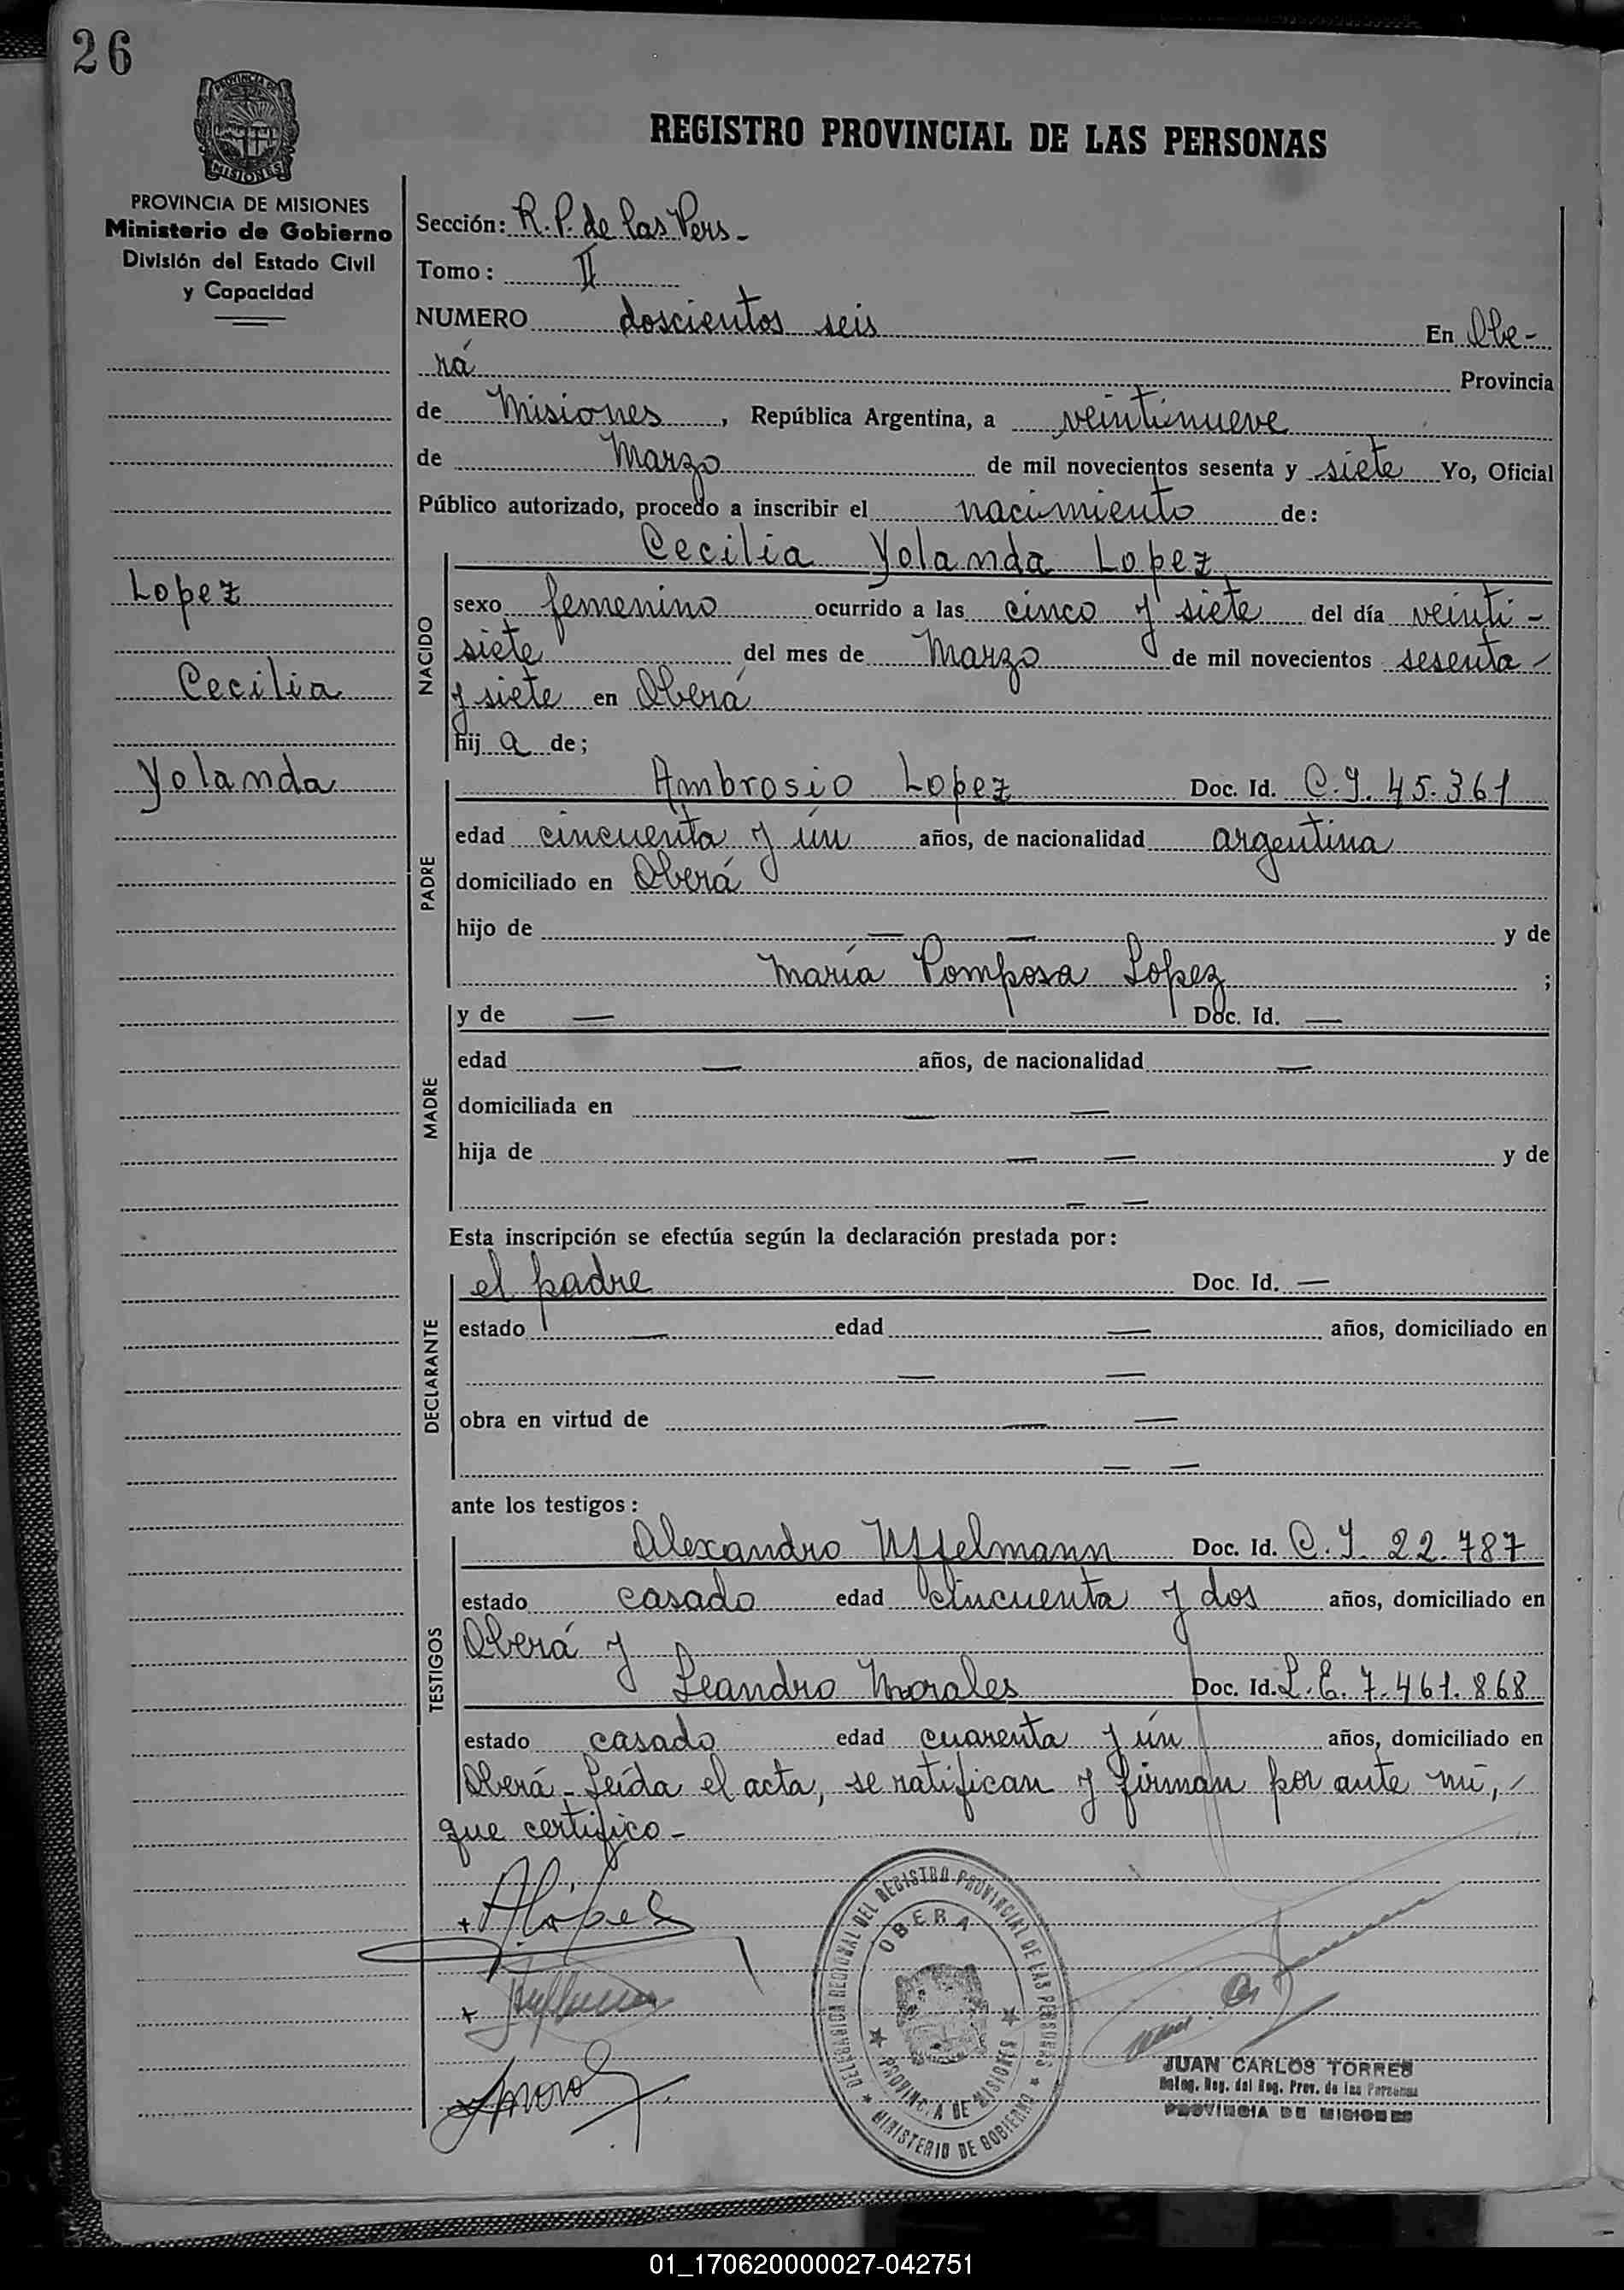 26
PROVINCIA DE
MISIONES
REGISTRO PROVINCIAL DE LAS PERSONAS
PROVINCIA DE MISIONES
Ministerio de Gobierno
División del Estado Civil
y Capacidad
Lopez
Cecilia
Yolanda
Sección: R. P. de las Pers-
Tomo: II
NUMERO doscientos seis En Obe-
rá Provincia
de Misiones, República Argentina, a veintinueve
de Marzo de mil novecientos sesenta y siete Yo, Oficial
Público autorizado, procedo a inscribir el nacimiento de:
NACIDO
Cecilia Yolanda Lopez
sexo femenino ocurrido a las cinco y siete del día veinti-
siete del mes de Marzo de mil novecientos sesenta
y siete en Oberá
hij a de;
PADRE
Ambrosio Lopez Doc. Id. C.I. 45.361
edad cincuenta y ún años, de nacionalidad argentina
domiciliado en Oberá
hijo de — — y de
María Pomposa Lopez ;
MADRE
y de — Doc. Id. —
edad — años, de nacionalidad —
domiciliada en — —
hija de — — y de
— —
Esta inscripción se efectúa según la declaración prestada por:
DECLARANTE
el padre Doc. Id. —
estado — edad — años, domiciliado en
— —
obra en virtud de — —
— —
ante los testigos:
TESTIGOS
Alexandro Uffelmann Doc. Id. C.I. 22.787
estado casado edad cincuenta y dos años, domiciliado en
Oberá y
Leandro Morales Doc. Id. L.E. 7.461.868
estado casado edad cuarenta y ún años, domiciliado en
Oberá - Leída el acta, se ratifican y firman por ante mí,
que certifico -
ALópez
DELEGACION REGIONAL DEL REGISTRO PROVINCIAL DE LAS PERSONAS
OBERA
PROVINCIA DE MISIONES
MINISTERIO DE GOBIERNO
JUAN CARLOS TORRES
Deleg. Reg. del Reg. Prov. de las Personas
PROVINCIA DE MISIONES
01_170620000027-042751